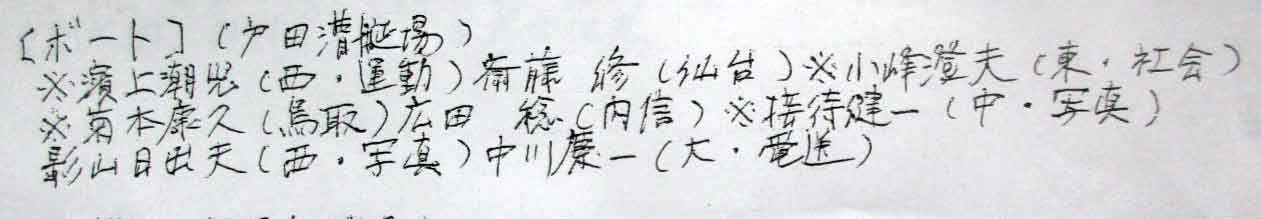 ［ボート］（戸田漕艇場）
※濱上潮児（西・運動）斎藤 修（仙台）※小峰澄夫（東・社会）
※菊本康久（鳥取）広田 総（内信）※接待健一（中・写真）
影山日出夫（西・写真）中川慶一（大・電送）